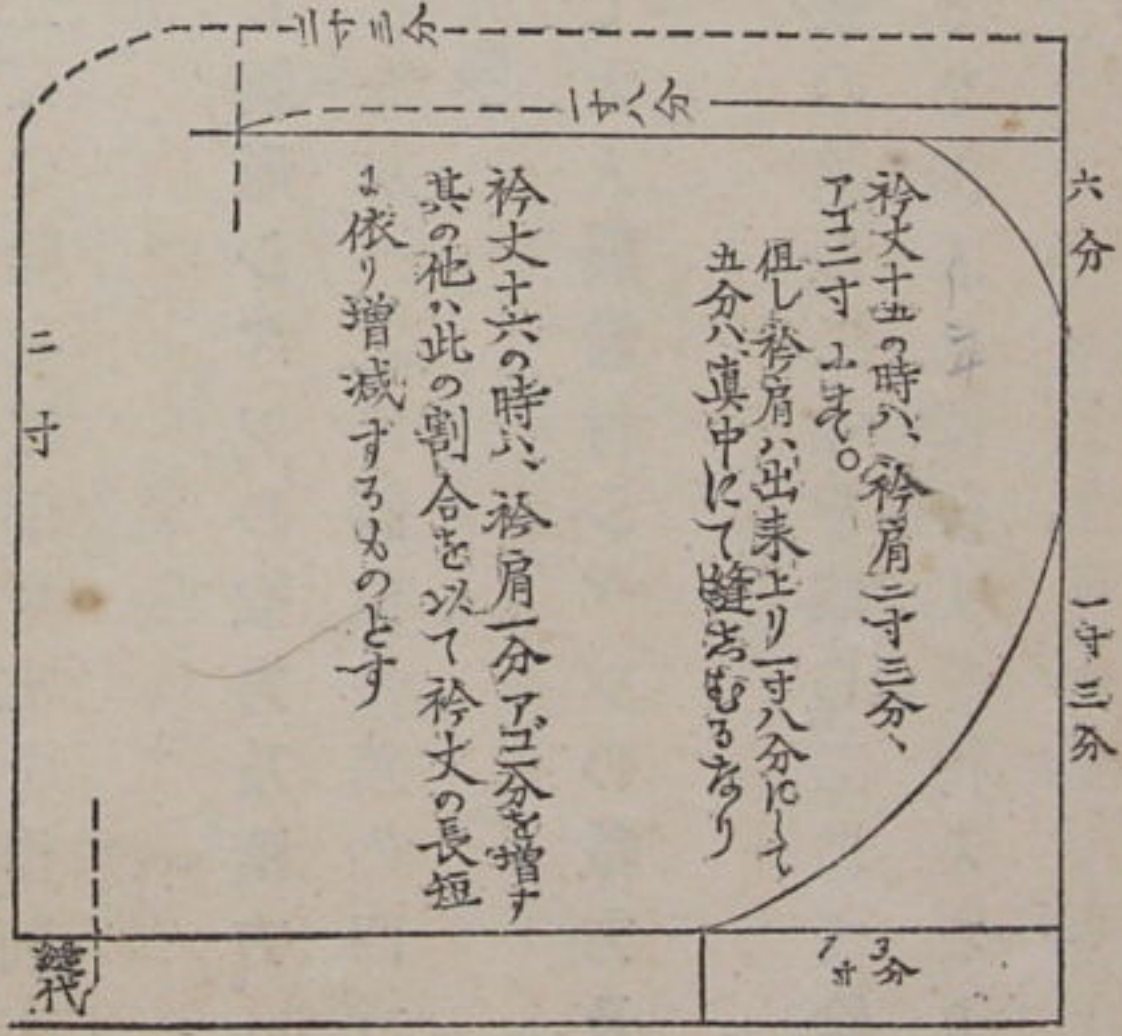 二寸三分
一寸八分
六分
一寸三分
衿丈十五の時ハ、衿肩二寸三分、
アゴ二寸とす。
但し衿肩ハ出来上リ一寸八分にして
五分ハ真中にて縫志むるなり
衿丈十六の時ハ、衿肩一分アゴ二分を増す
其の他ハ此の割合を以て衿丈の長短
に依り増減するものとす
二寸
1寸3分
縫代